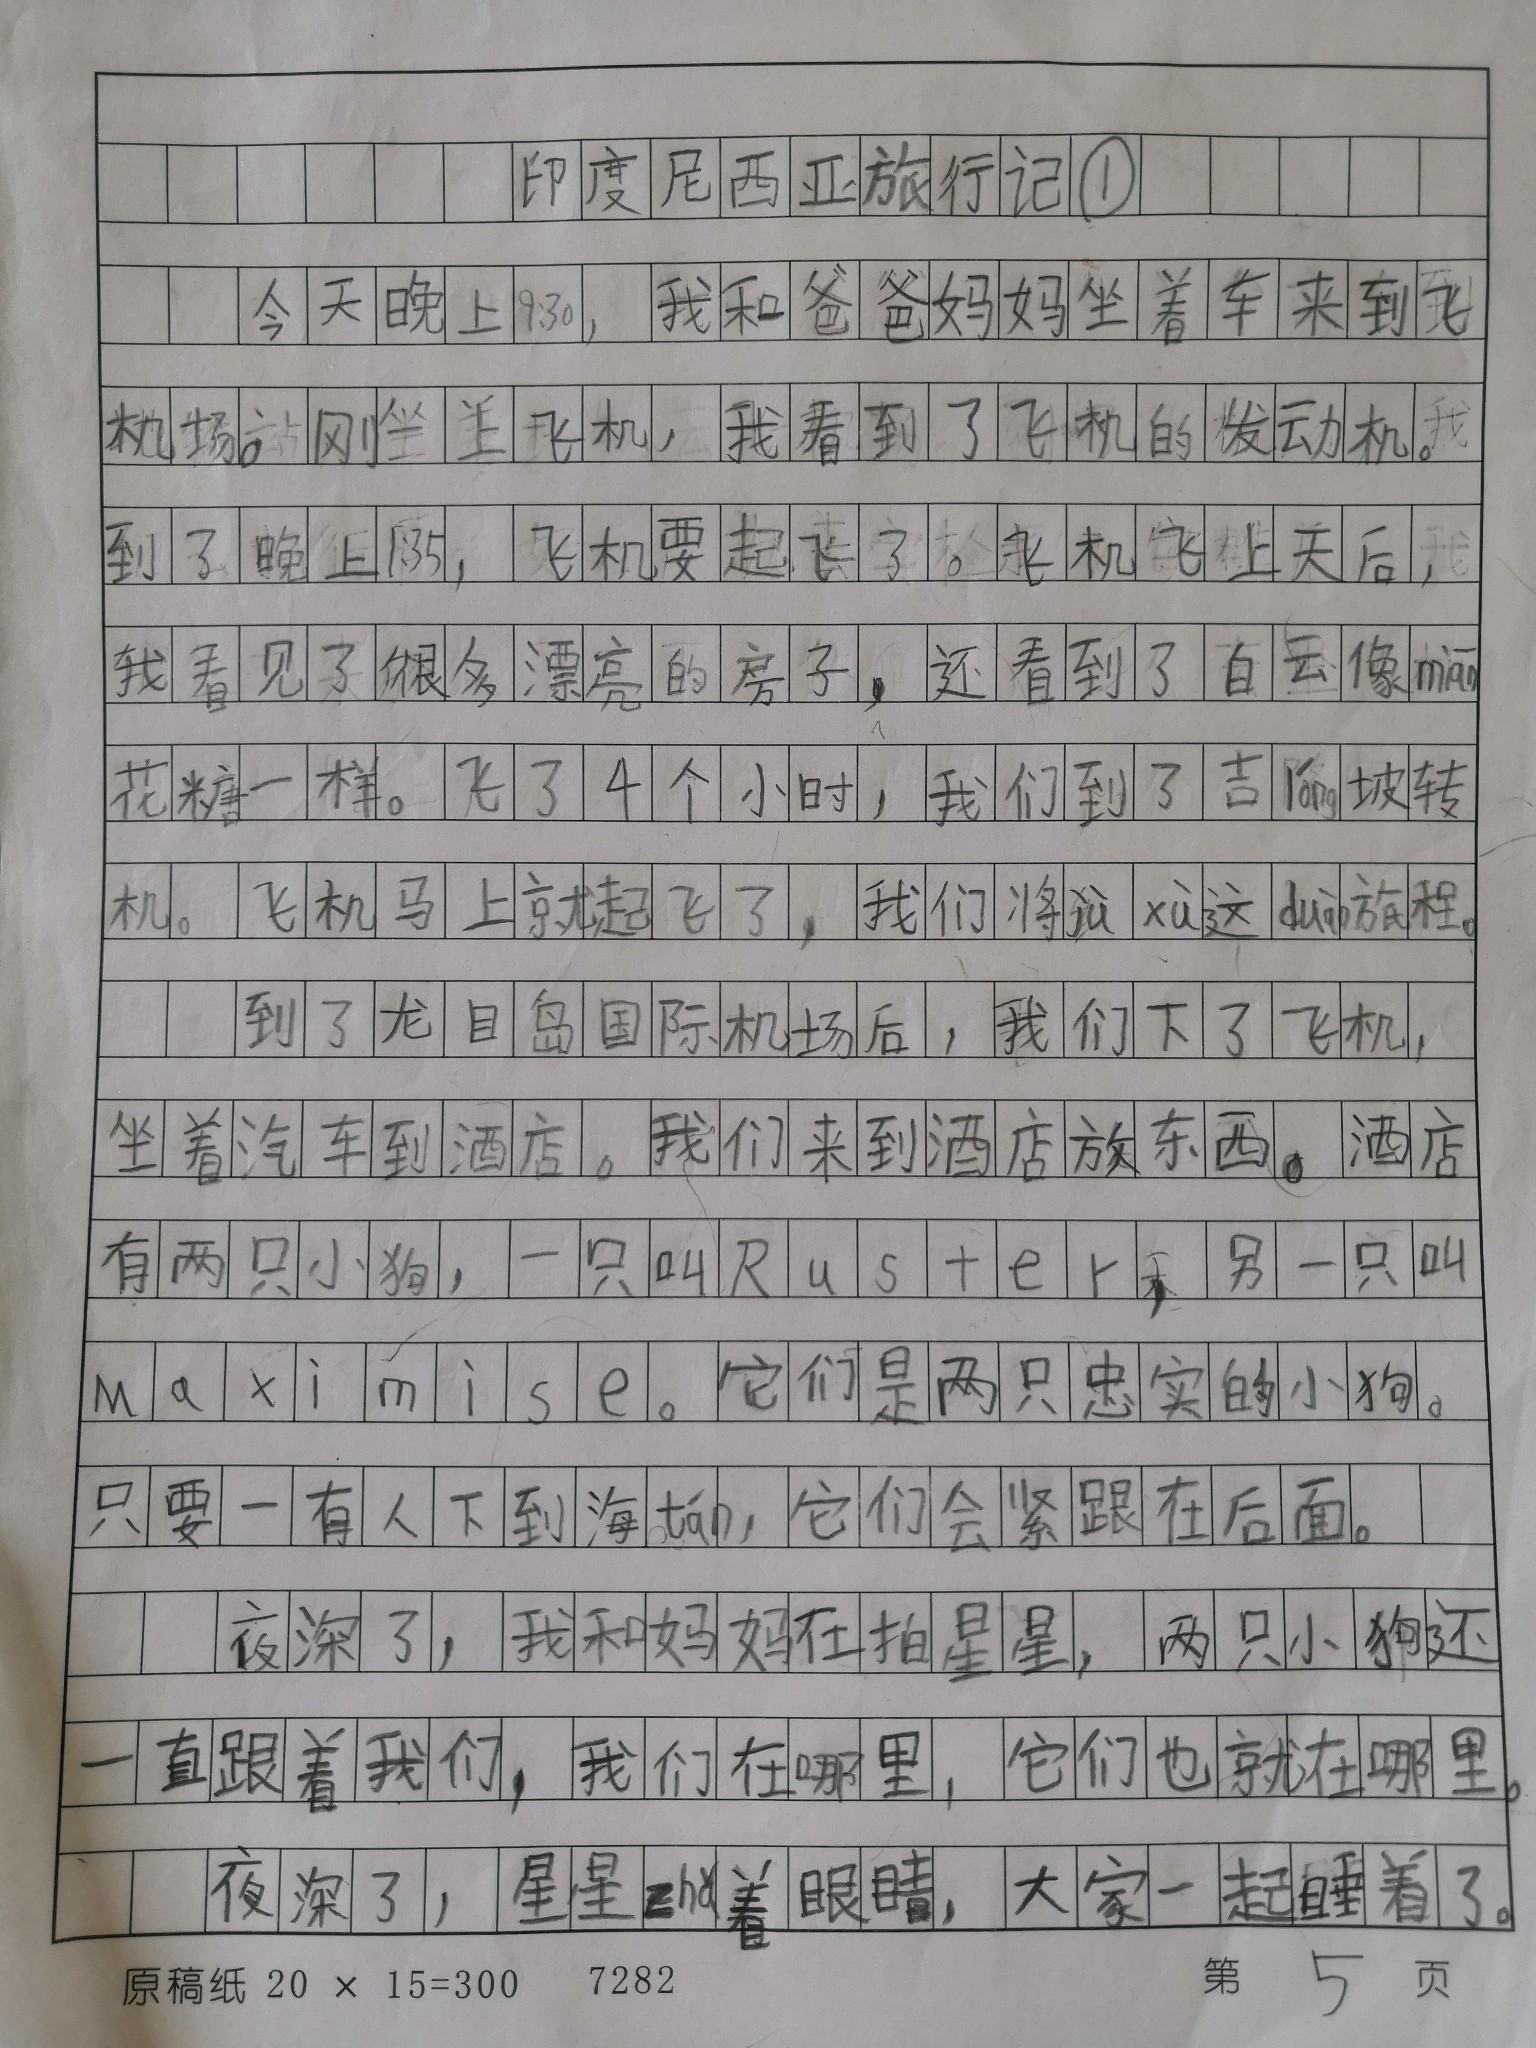 印度尼西亚旅行记①
今天晚上9:30，我和爸爸妈妈坐着车来到飞
机场。刚坐上飞机，我看到了飞机的发动机。
到了晚上1:35，飞机要起飞了。飞机飞上天后，
我看见了很多漂亮的房子，还看到了白云像mián
花糖一样。飞了4个小时，我们到了吉lóng坡转
机。飞机马上就起飞了，我们将jì xù这duàn旅程。
到了龙目岛国际机场后，我们下了飞机，
坐着汽车到酒店。我们来到酒店放东西。酒店
有两只小狗，一只叫Ruster，另一只叫
Maximise。它们是两只忠实的小狗。
只要一有人下到海tán，它们会紧跟在后面。
夜深了，我和妈妈在拍星星，两只小狗还
一直跟着我们，我们在哪里，它们也就在哪里。
夜深了，星星zhǎ着眼睛，大家一起睡着了。
原稿纸 20 × 15=300 7282 第 5 页